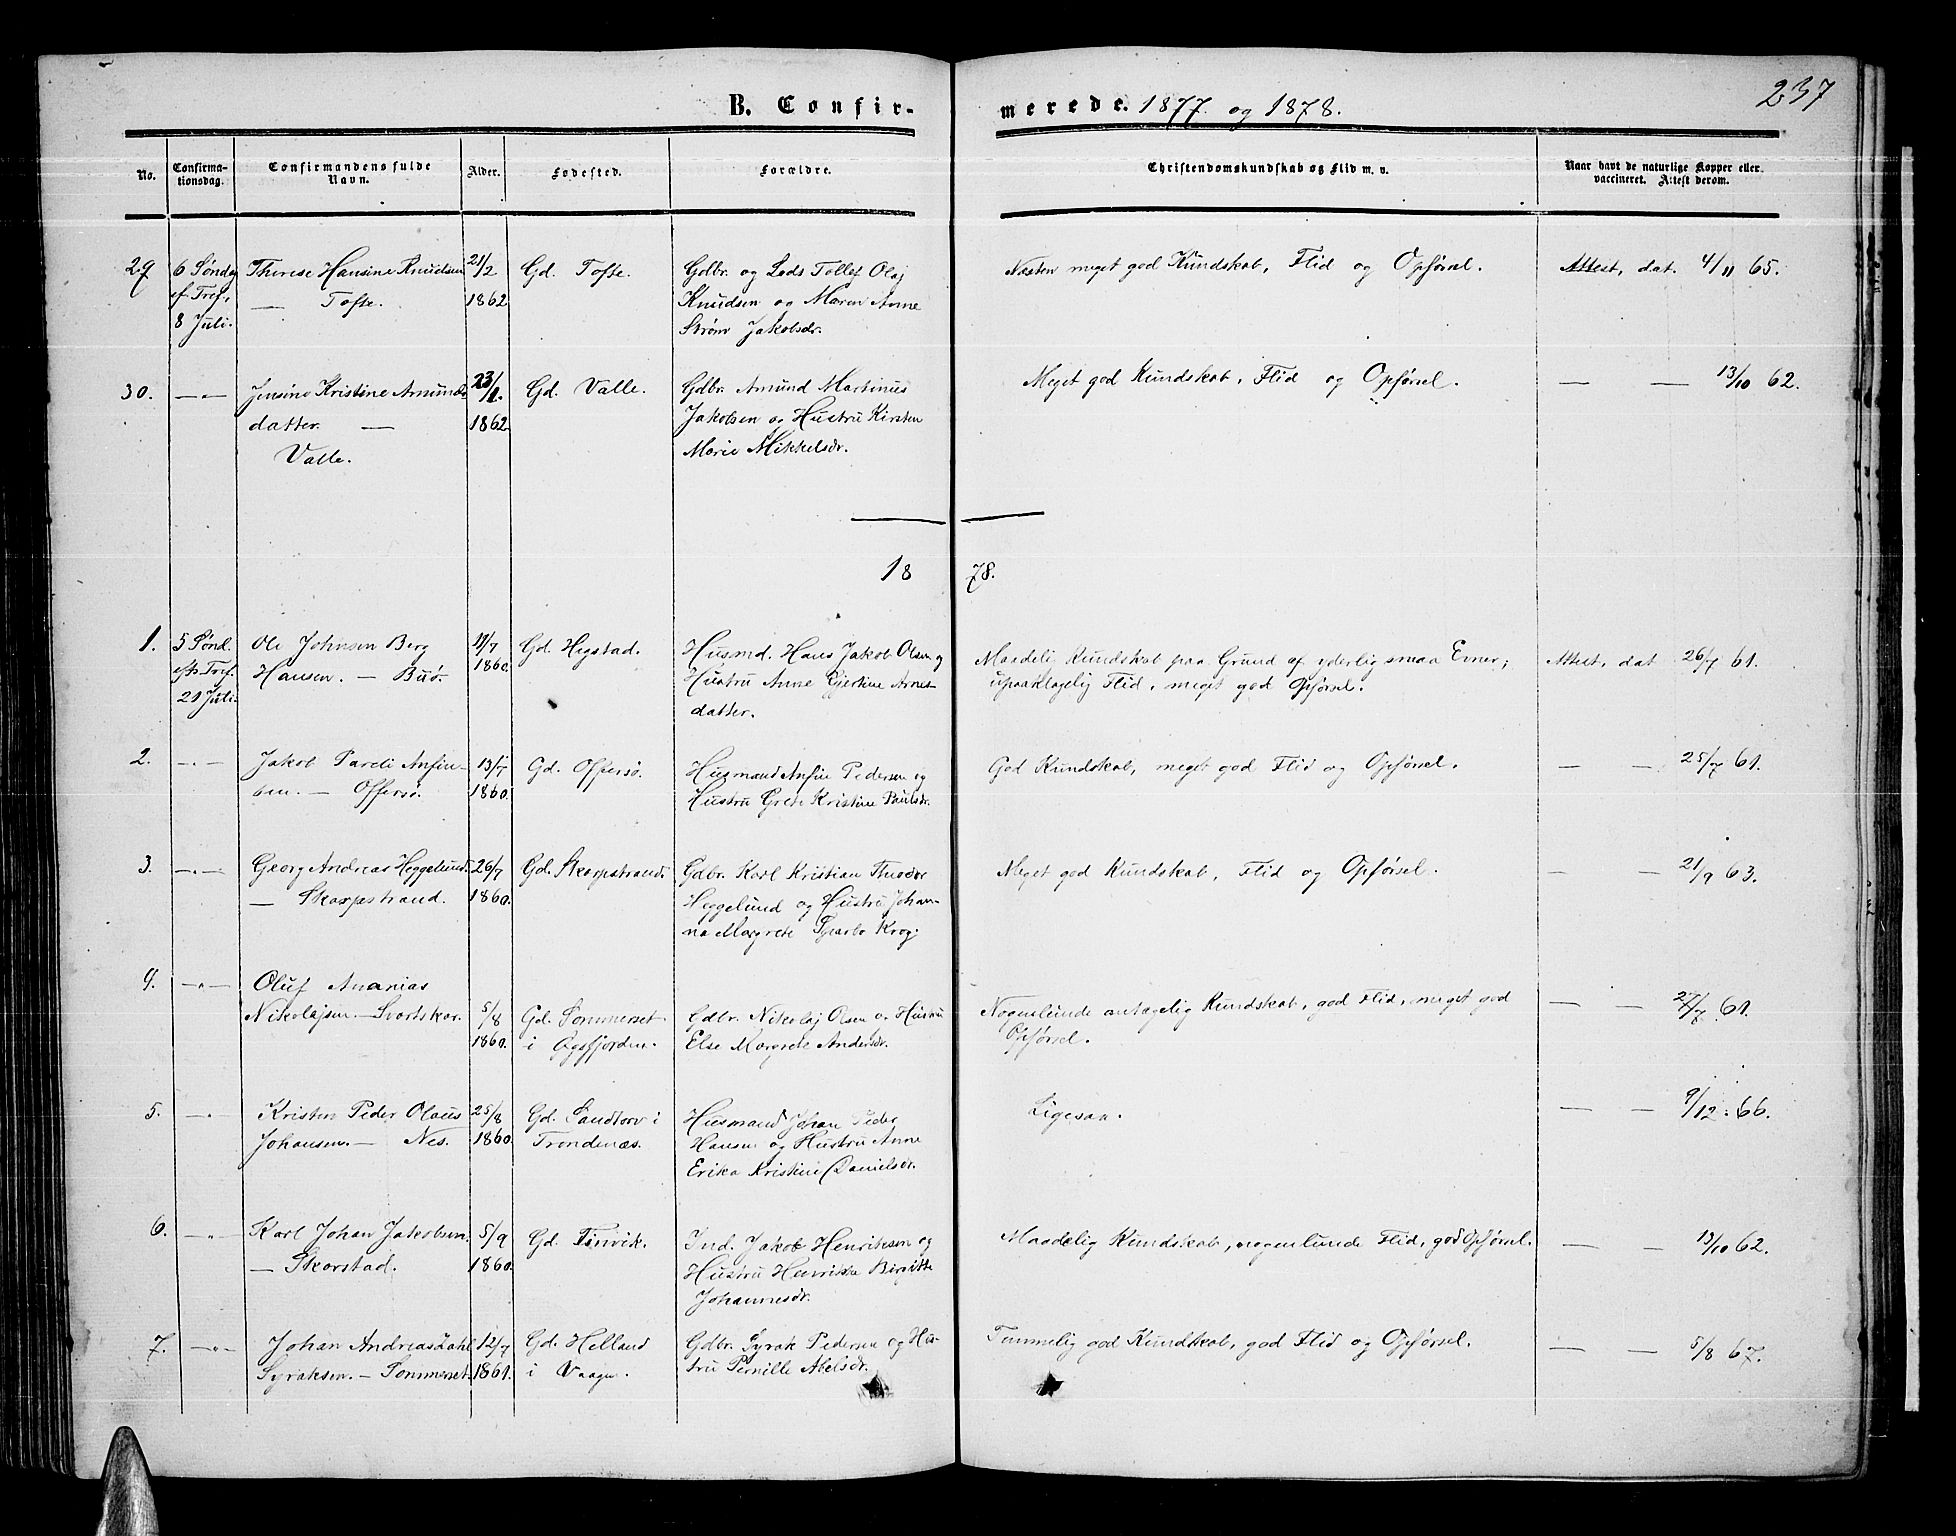 237
B. Confirmerede. 1877 og 1878.
No.
Confirma-
tionsdag.
Confirmandens fulde
Navn.
Alder.
Fødested.
Forældre.
Christendomskundskab og Flid m. v.
Naar havt de naturlige Kopper eller
vaccineret. Attest derom.
29 6 Sønd. Therese Hansine Knudsen 21/2 Gd. Tofte. Gdbr. og Lods Tollef Olaj Næsten meget god Kundskab, Flid og Opførsel. Attest, dat. 4/11 65.
ef. Tref. — Tofte. 1862 Knudsen og Maren Anne
8 Juli. Strøm Jakobsdr.
30. —"— Jensine Kristine Amunds- 23/1. Gd. Valle. Gdbr. Amund Martinus Meget god Kundskab, Flid og Opførsel. — — 13/10 62.
datter. — 1862 Jakobsen og Hustru Kirsten
Valle. Marie Mikkelsdr.
1878.
1. 5 Sønd. Ole Johnsen Berg 11/7 Gd. Higstad. Husmd. Hans Jakob Olsen og Maadelig Kundskab paa Grund af yderlig smaa Evner; Attest, dat 26/7 61.
eft. Tref. Hansen. — Buø. 1860. Hustru Anne Gjertine Arnes- upaaklagelig Flid, meget god Opførsel.
21 Juli. datter.
2. —"— Jakob Pareli Anfin- 13/7 Gd. Offersø. Husmand Anfin Pedersen og God Kundskab, meget god Flid og Opførsel. — — 25/7 61.
sen. — Offersø. 1860. Hustru Grete Kristine Paulsdr.
3. —"— Georg Andreas Heggelund. 26/7 Gd. Skarpstrand. Gdbr. Karl Kristian Theodor Meget god Kundskab, Flid og Opførsel. — — 21/9 63.
— Skarpstrand. 1860. Heggelund og Hustru Johan-
na Margrete Krog.
4. —"— Oluf Ananias
Nikolajsen — Svartskar. 5/8 Gd. Sommerset Gdbr. Nikolaj Olsen og Hustru Nogenlunde antagelig Kundskab, god Flid, meget god — — 27/7 61.
1860. i Øgsfjorden. Else Margrete Andersdr. Opførsel.
5. —"— Kristen Peder Olaus 25/8 Gd. Sandtorv i Husmand Johan Peder Ligesaa. — — 9/12 66.
Johansen. — Nes. 1860 Trondenæs. Hansen og Hustru Anne
Erika Kristine Danielsdr.
6. —"— Karl Johan Jakobsen. 5/9 Gd. Finvik. Ind. Jakob Henriksen og Maadelig Kundskab, nogenlunde Flid, god Opførsel. — — 13/10 62.
— Skarstad. 1860. Hustru Henrikke Birgitte
Johannesdr.
7. —"— Johan Andreas Dahl 12/7 Gd. Helland Gdbr. Syrak Pedersen og Hu- Temmelig god Kundskab, god Flid og Opførsel. — — 5/8 67.
Syraksen. — Sommerset. 1861. i Vaagen. stru Pernille Abelsdr.